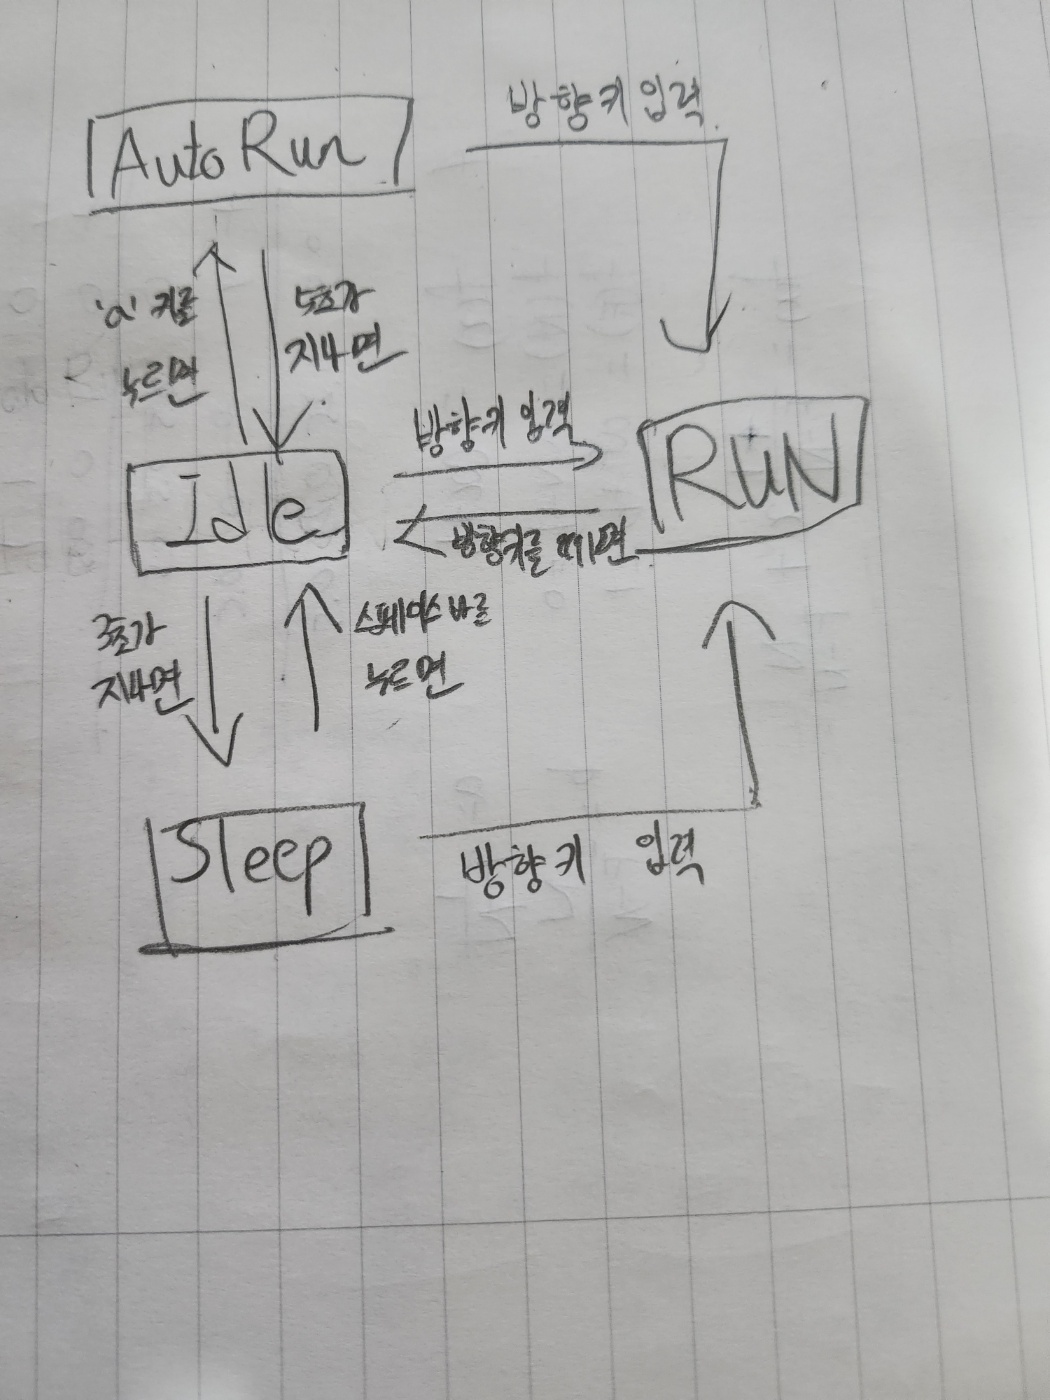 방향키 입력
Auto Run
'a' 키를
누르면
5초가
지나면
방향키 입력
RUN
Idle
방향키를 떼면
3초가
지나면
스페이스 바를
누르면
Sleep
방향키 입력